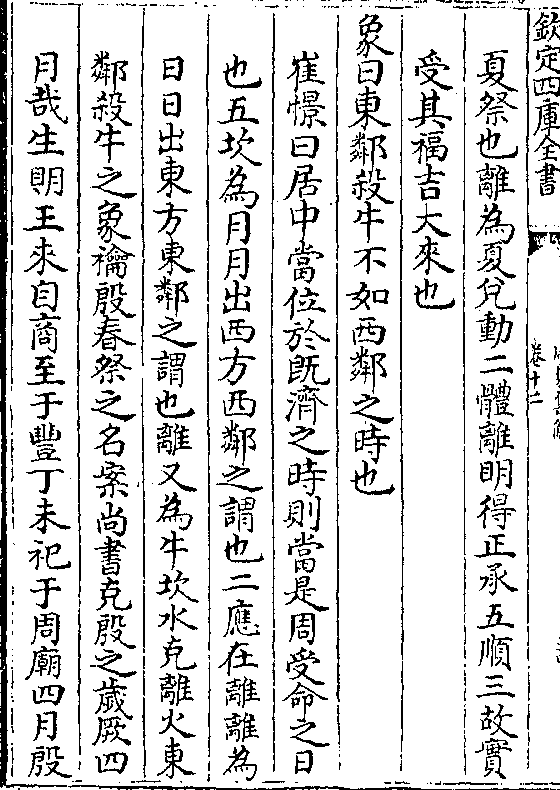 欽定四庫全書
卷十二
夏祭也離為夏兊動二體離明得正承五順三故實
受其福吉大來也
象曰東鄰殺牛不如西鄰之時也
崔憬曰居中當位於旣濟之時則當是周受命之日
也五坎為月月出西方西鄰之謂也二應在離離為
日日出東方東鄰之謂也離又為牛坎水克離火東
鄰殺牛之象禴殷春祭之名案尚書克殷之歳厥四
月哉生明王來自商至于豐丁未祀于周廟四月殷